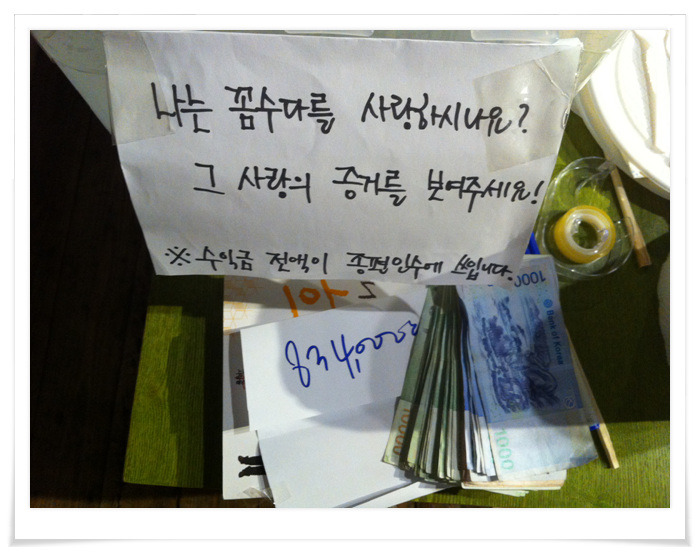 나는 꼼수다를 사랑하시나요?
그 사랑의 증거를 보여주세요!
※ 수익금 전액이 종편인수에 쓰입니다.
834,0000
1000
Bank of Korea
1000
10000